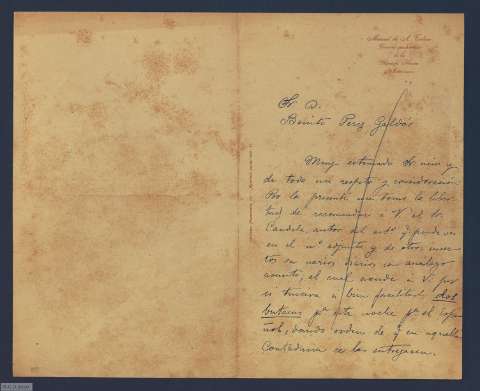 Manuel de A. Tolosa
Sr. D.
Benito Perez Galdós
Muy estimado Sr. mio y
de todo mi respeto y consideracion:
Por la presente me tomo la liber-
tad de recomendar a V. el Sr.
Candela, autor del artº q. puede ver
en el nº adjunto y de otros
en varios diarios en analogo
asunto, el cual acude a V. por
si tuviera a bien facilitarle dos
butacas pª esta noche pª el Espa-
ñol, dando orden de q. en aquella
Contaduria se las entreguen.